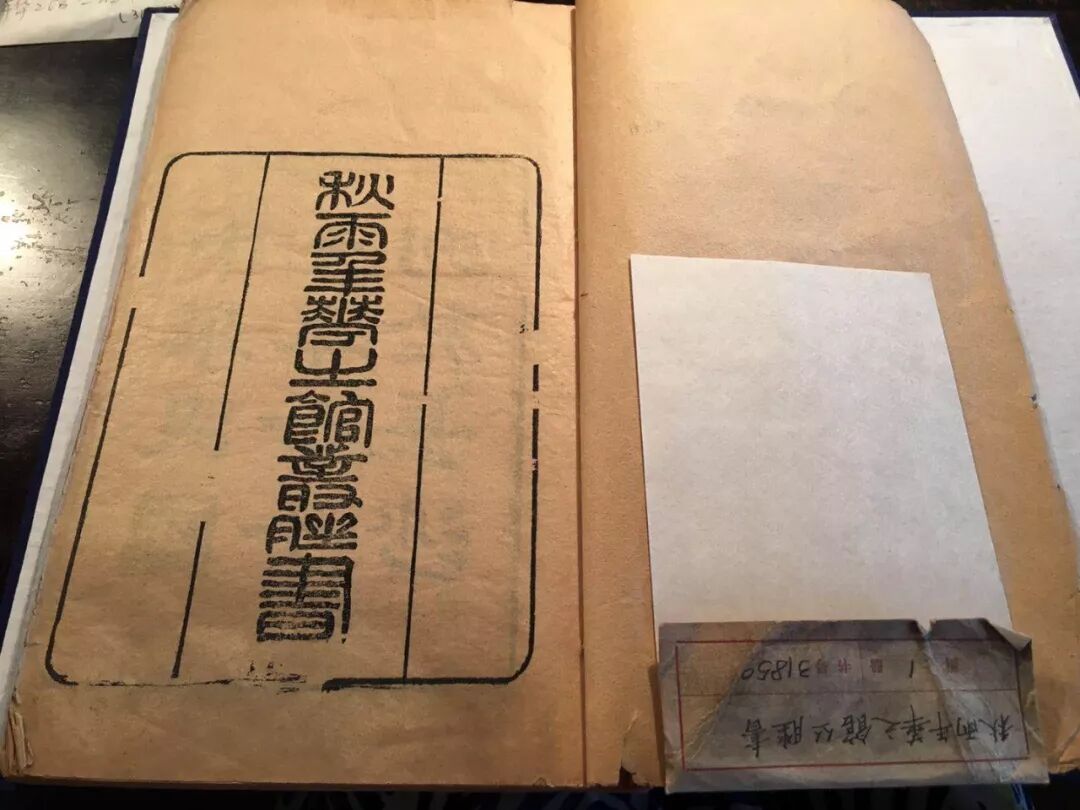 秋雨年華之館叢脞書
秋雨年華之館丛脞書
1 书号 31850